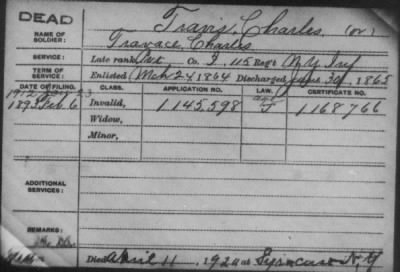 DEAD
NAME OF SOLDIER: Travis, Charles (or)
Travace, Charles
SERVICE: Late rank Pvt Co. F, 115 Reg't N.Y. Inf
TERM OF SERVICE: Enlisted Mch 24, 1864 Discharged June 30, 1865
DATE OF FILING. CLASS. APPLICATION NO. LAW. CERTIFICATE NO.
1893 Feb 6 Invalid, 1145,598 1168,766
Widow,
Minor,
ADDITIONAL SERVICES:
REMARKS:
Died April 11, 192 at Syracuse N.Y